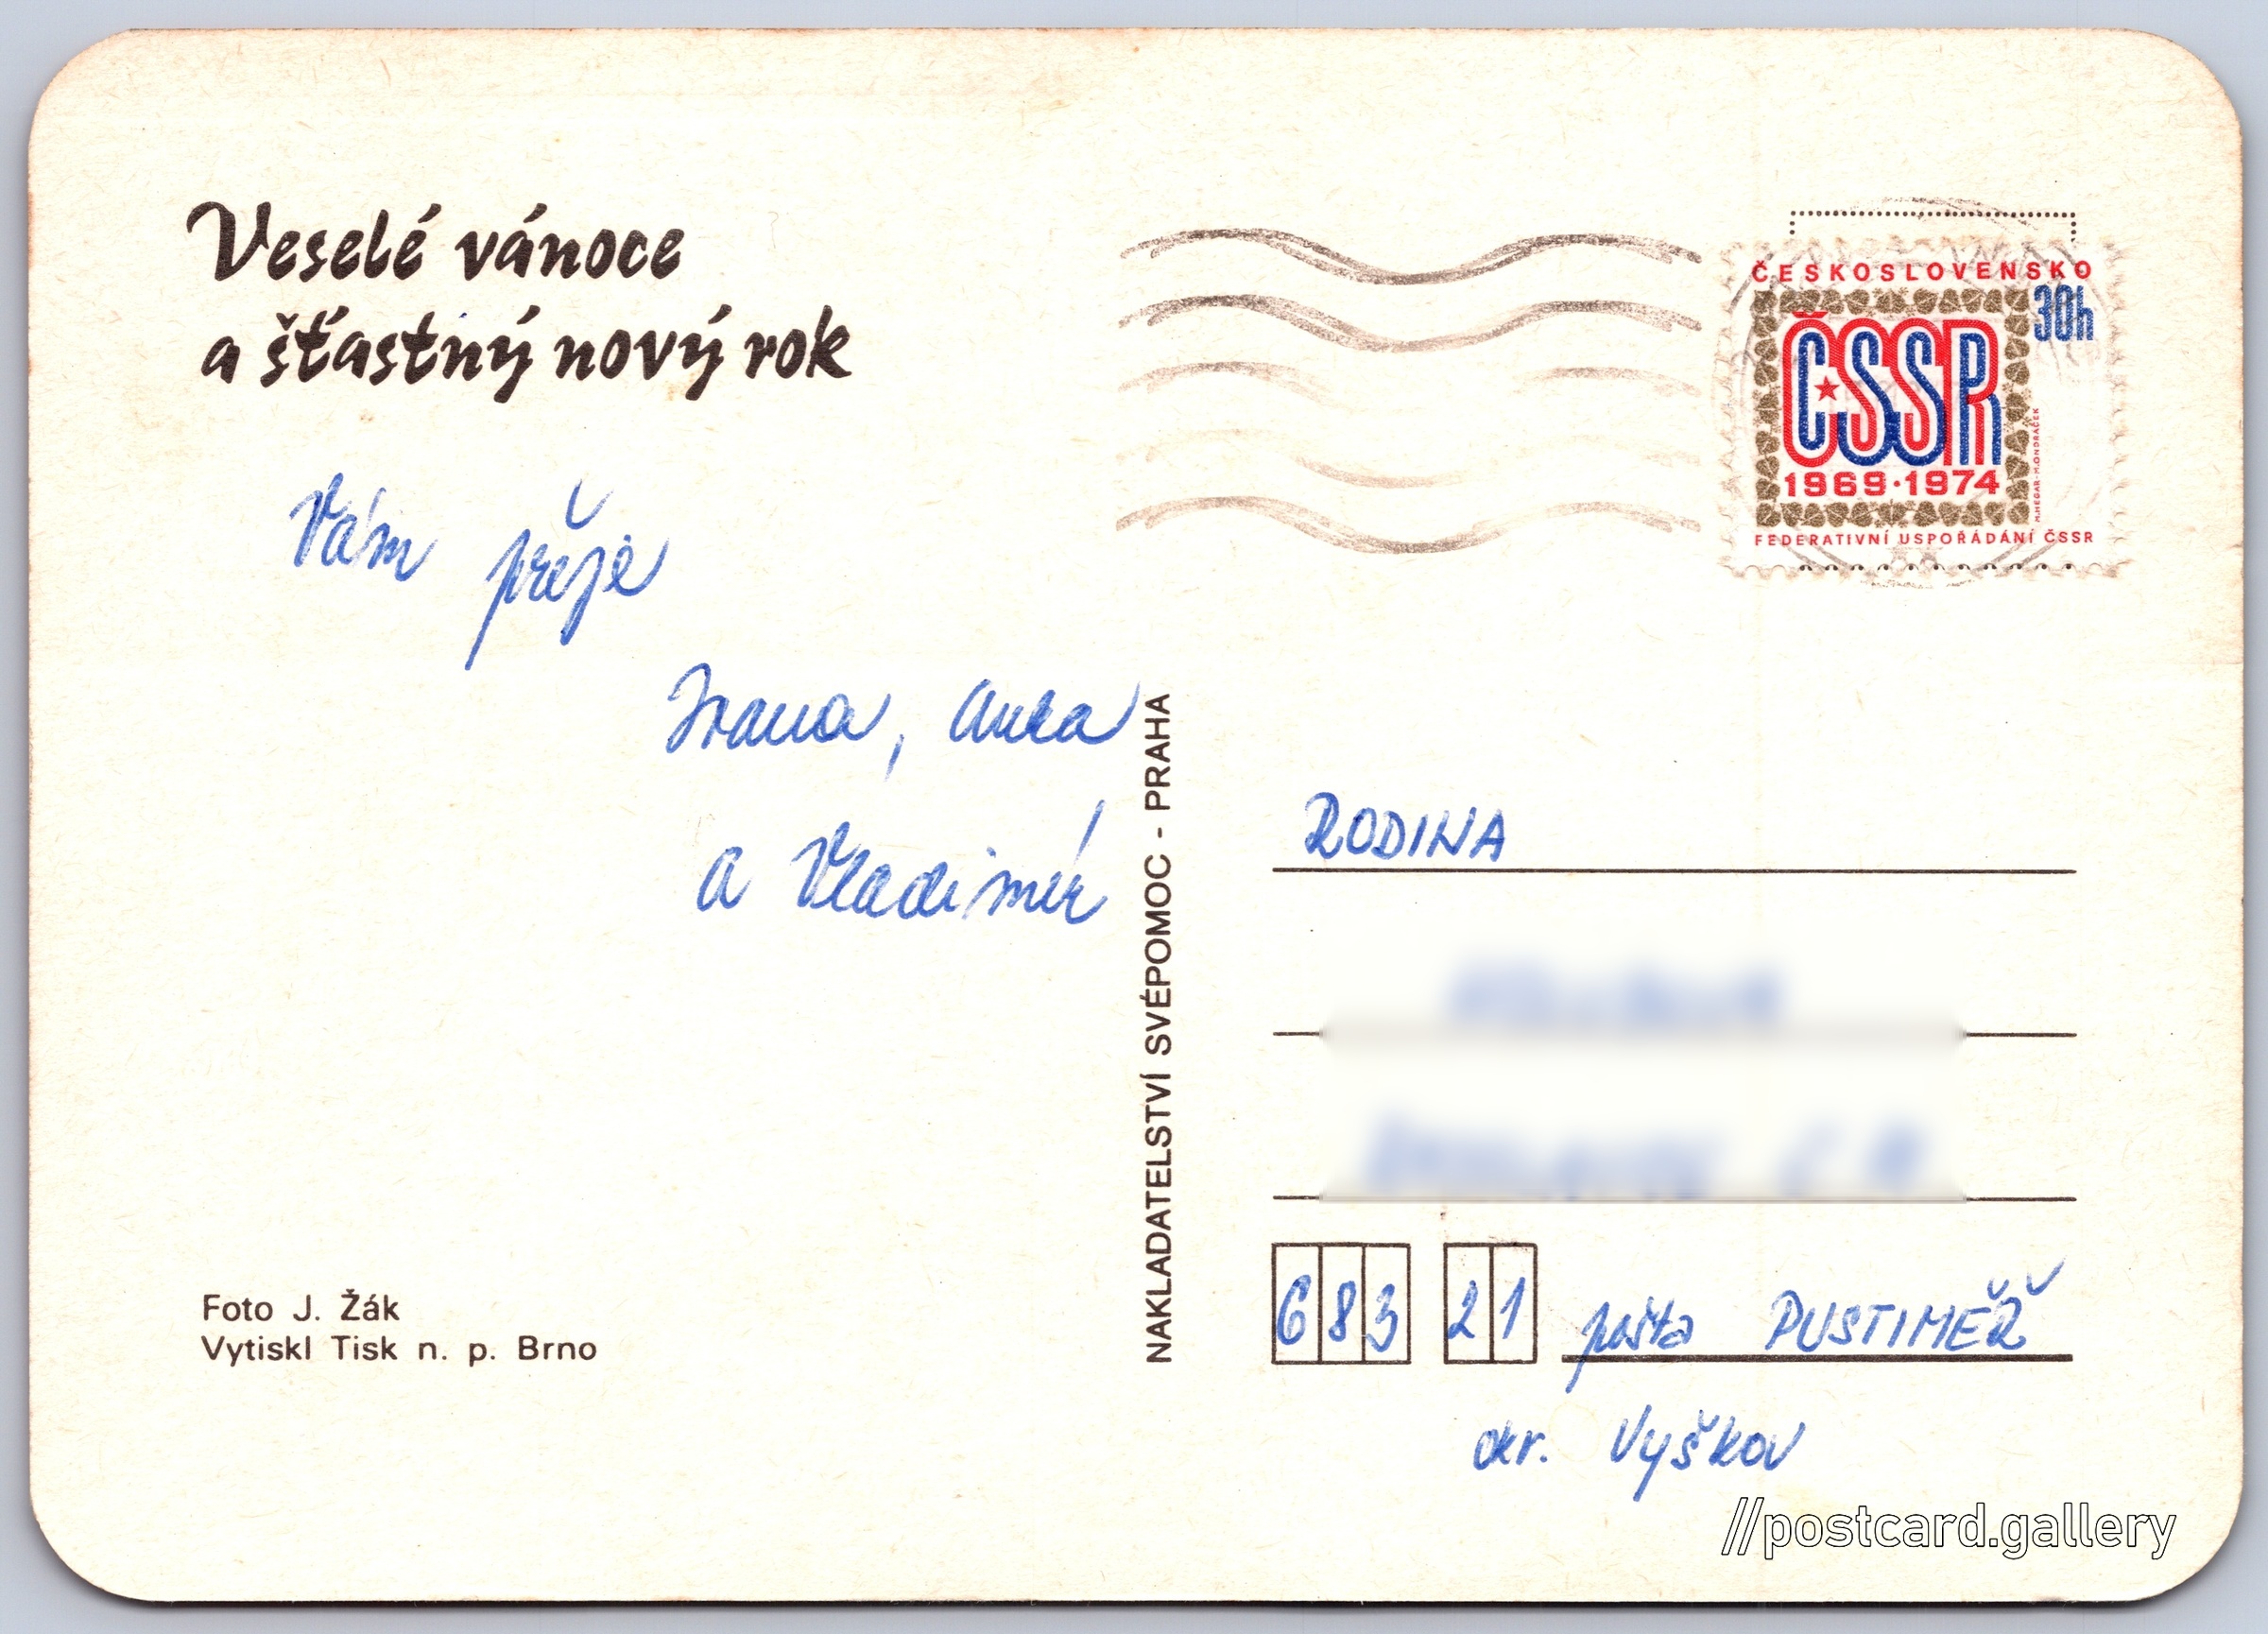 Veselé vánoce
a šťastný nový rok
Vám přeje
Ivana, Anka
a Vladimír
Foto J. Žák
Vytiskl Tisk n. p. Brno
NAKLADATELSTVÍ SVÉPOMOC - PRAHA
ČESKOSLOVENSKO
30h
ČSSR
1969·1974
M.HEGAR-M.ONDRÁČEK
FEDERATIVNÍ USPOŘÁDÁNÍ ČSSR
RODINA
683 21 pošta PUSTIMĚŘ
okr. Vyškov
//postcard.gallery